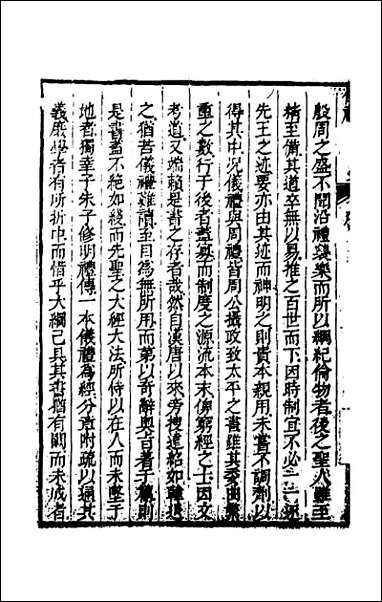 殷周之盛不聞沿禮襲樂而所以綱紀倫物者後之聖人雖至
精至備其道卒無以易推之百世而下因時制宜不必一一
先王之迹要亦由其迹而神明之則貴本親用未嘗不調劑以
得其中況儀禮與周禮皆周公攝政致太平之書雖其委曲繁
重之數行于後者蓋寡而制度之源流本末俾窮經之士因文
考道又端賴是書之存者哉然自漢唐以來旁搜遠紹如韓退
之猶苦儀禮難讀至目為無所用而第以奇辭奧旨著于篇則
是書蓋不絕如綫而先聖之大經大法所恃以在人而未墜于
地者獨幸子朱子修明禮傳一本儀禮為經分章附疏以通其
義庶學者有所折中而惜乎大綱已具其書猶有闕而未成者